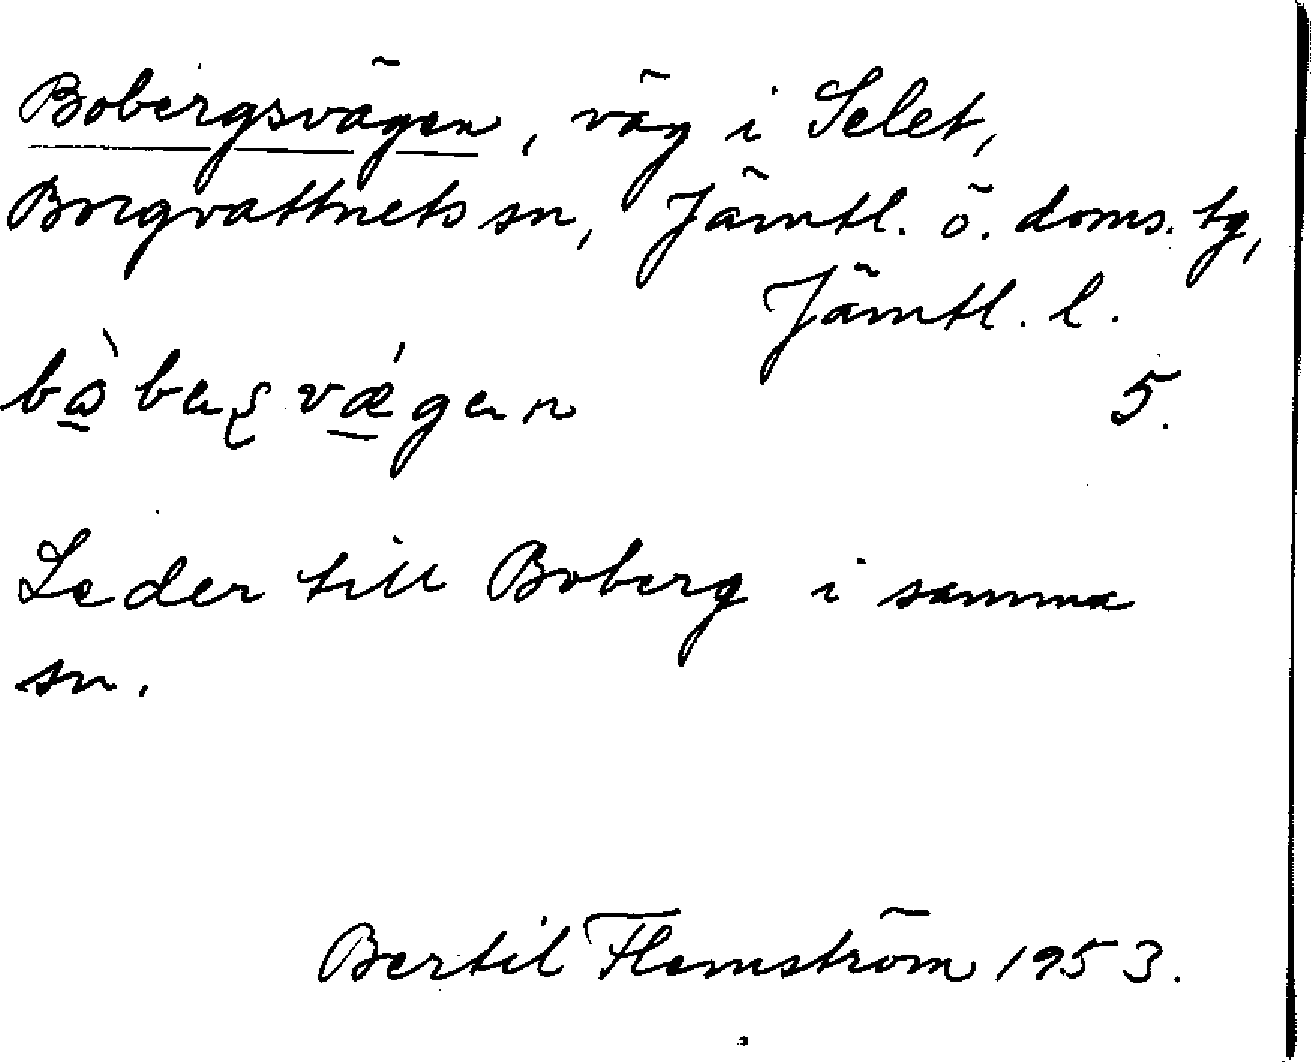 Bobergsvägen, väg i Selet,
Borgvattnets sn, Jämtl. ö. doms. tg,
Jämtl. l.
5.
Leder till Boberg i samma
sn.
Bertil Flemström 1953.